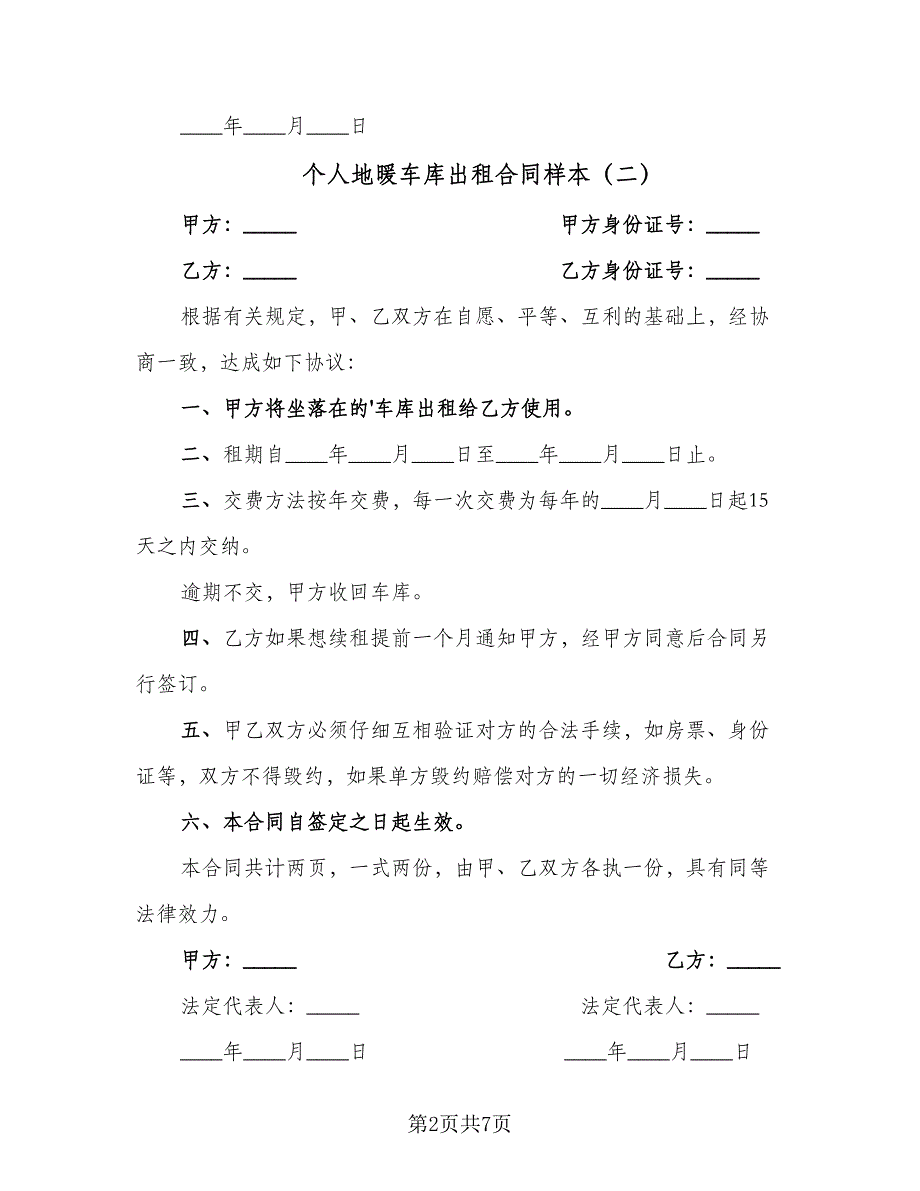 ____年____月____日
个人地暖车库出租合同样本（二）
甲方：_____ 甲方身份证号：_____
乙方：_____ 乙方身份证号：_____
根据有关规定，甲、乙双方在自愿、平等、互利的基础上，经协
商一致，达成如下协议：
一、甲方将坐落在的'车库出租给乙方使用。
二、租期自____年____月____日至____年____月____日止。
三、交费方法按年交费，每一次交费为每年的____月____日起15
天之内交纳。
逾期不交，甲方收回车库。
四、乙方如果想续租提前一个月通知甲方，经甲方同意后合同另
行签订。
五、甲乙双方必须仔细互相验证对方的合法手续，如房票、身份
证等，双方不得毁约，如果单方毁约赔偿对方的一切经济损失。
六、本合同自签定之日起生效。
本合同共计两页，一式两份，由甲、乙双方各执一份，具有同等
法律效力。
甲方：_____ 乙方：_____
法定代表人：_____ 法定代表人：_____
____年____月____日 ____年____月____日
第2页共7页